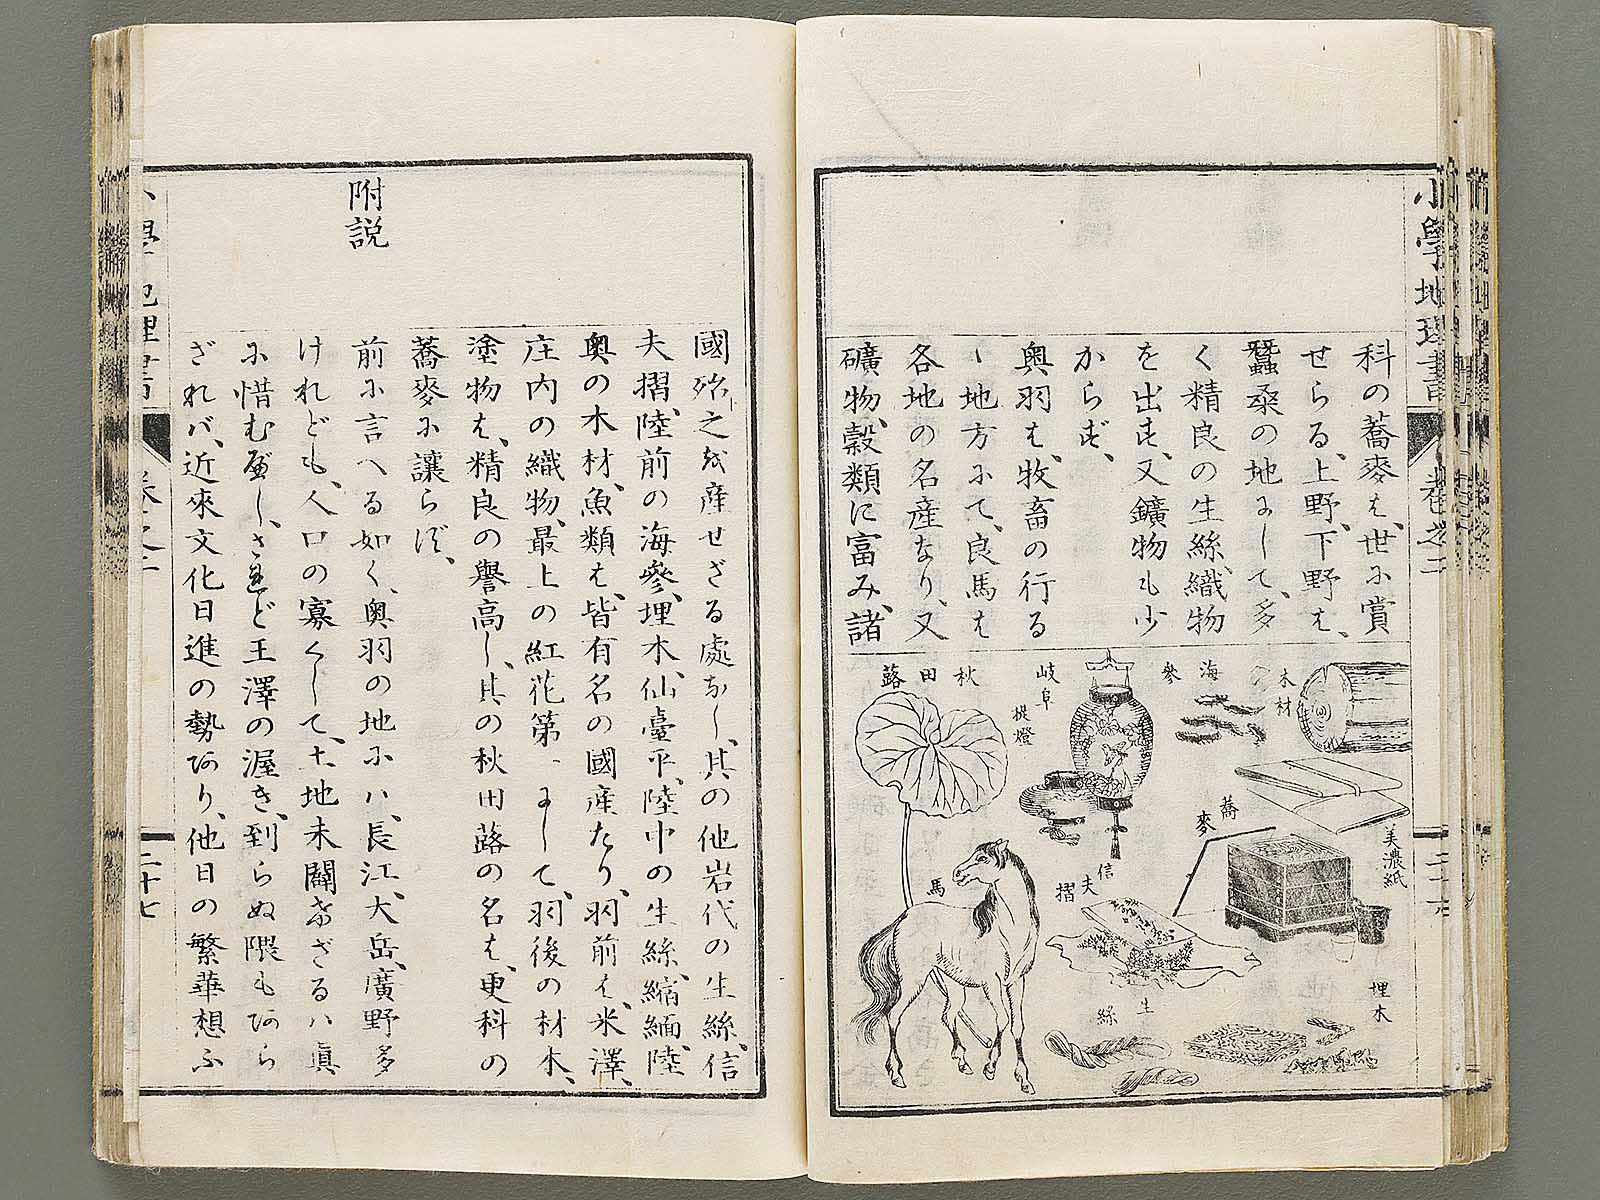 小學地理書
卷之二
二十六
科の蕎麥は、世に賞
せらる、上野、下野は、
蠶桑の地にして、多
く精良の生絲、織物
を出す、又鑛物も少
からず、
奥羽は、牧畜の行る
ゝ地方にて、良馬は
各地の名産なり、又
礦物、穀類に富み、諸
木材
海參
岐阜
提燈
秋田蕗
美濃紙
蕎麥
信夫摺
馬
埋木
生絲
國殆之を産せざる處なし、其の他岩代の生絲、信
夫摺、陸前の海參、埋木、仙臺平、陸中の生絲、縮緬、陸
奥の木材、魚類は、皆有名の國産たり、羽前は、米澤、
庄内の織物、最上の紅花第一にして、羽後の材木、
塗物は、精良の譽高し、其の秋田蕗の名は、更科の
蕎麥に讓らず、
附説
前に言へる如く、奥羽の地には、長江、大岳、廣野多
けれども、人口の寡くして、土地未闢けざるは眞
に惜むべし、されど王澤の渥き、到らぬ隈もあら
ざれば、近來文化日進の勢あり、他日の繁華想ふ
小學地理書
卷之二
二十七